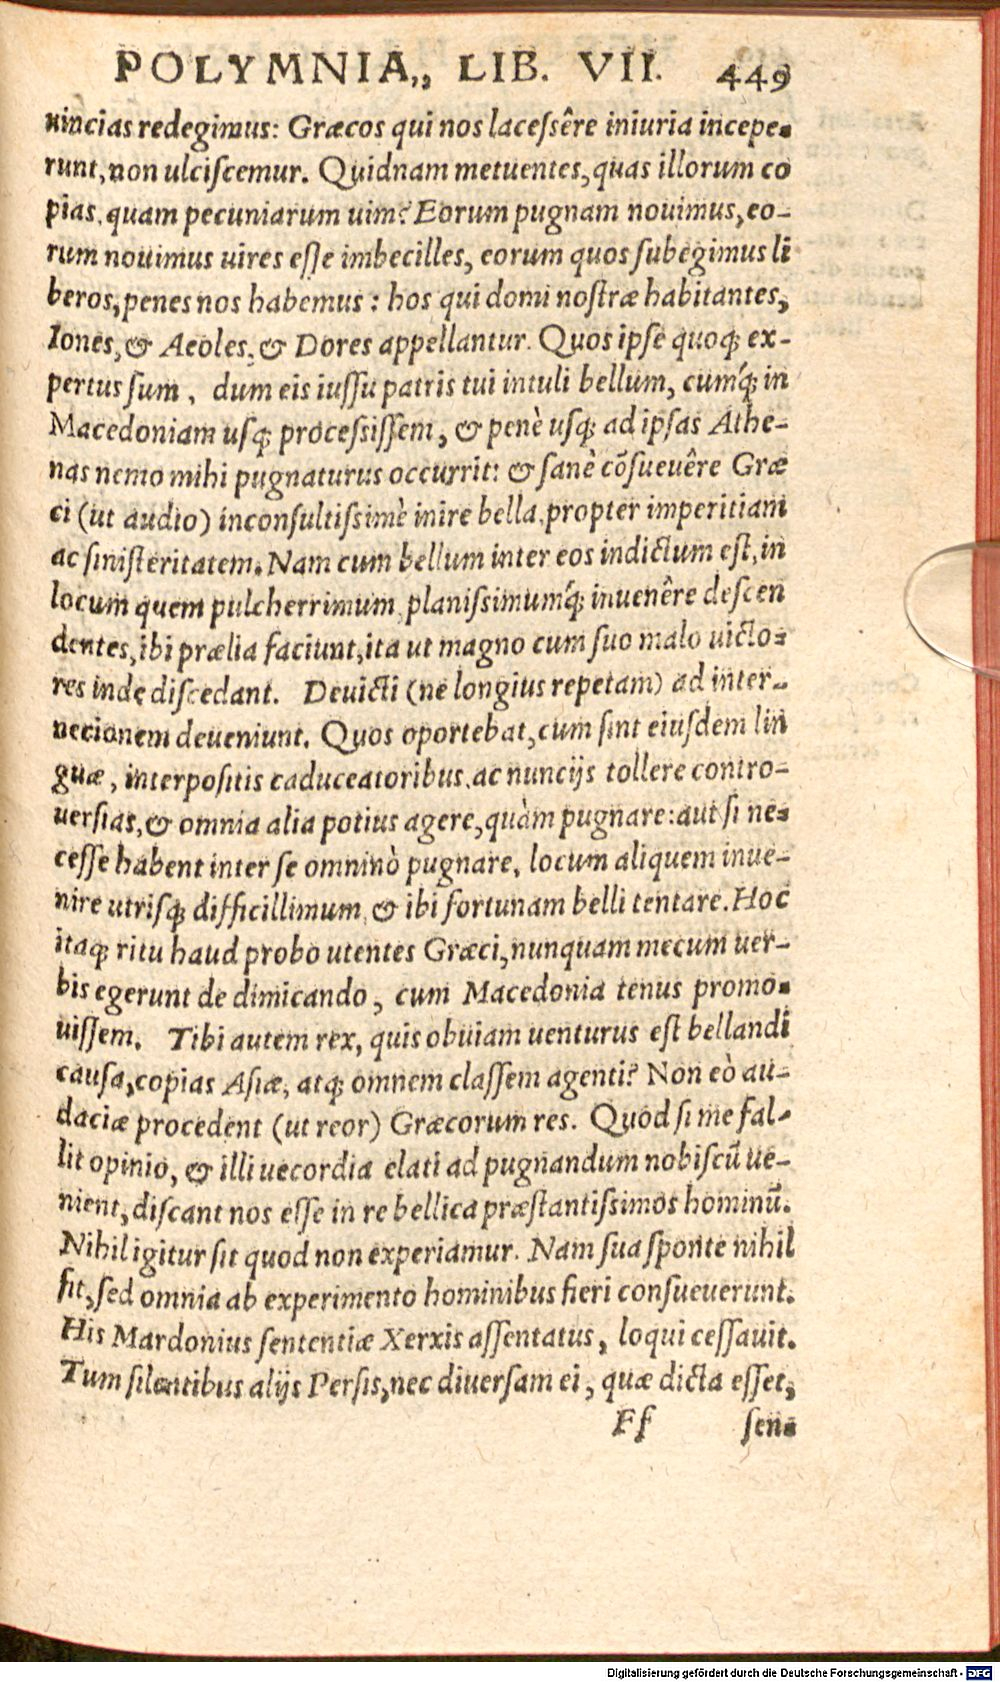 POLYMNIA,, LIB. VII. 449
uincias redegimus: Græcos qui nos lacessêre iniuria incepe-
runt, non ulciscemur. Quidnam metuentes, quas illorum co
pias, quam pecuniarum uim? Eorum pugnam nouimus, eo-
rum nouimus uires esse imbecilles, eorum quos subegimus li
beros, penes nos habemus: hos qui domi nostræ habitantes,
Iones, & Aeoles, & Dores appellantur. Quos ipse quoq; ex-
pertus sum, dum eis iussu patris tui intuli bellum, cumq́; in
Macedoniam usq; processissem, & penè usq; ad ipsas Athe-
nas nemo mihi pugnaturus occurrit: & sanè cōsueuêre Græ
ci (ut audio) inconsultissimè inire bella, propter imperitiam
ac sinisteritatem. Nam cum bellum inter eos indictum est, in
locum quem pulcherrimum planissimumq́; inuenêre descen
dentes, ibi prælia faciunt, ita ut magno cum suo malo uicto-
res inde discedant. Deuicti (ne longius repetam) ad inter-
necionem deueniunt. Quos oportebat, cum sint eiusdem lin
guæ, interpositis caduceatoribus, ac nuncijs tollere contro-
uersias, & omnia alia potius agere, quàm pugnare: aut si ne-
cesse habent inter se omninò pugnare, locum aliquem inue-
nire utrisq; difficillimum & ibi fortunam belli tentare. Hoc
itaq; ritu haud probo utentes Græci, nunquam mecum uer-
bis egerunt de dimicando, cum Macedonia tenus promo-
uissem. Tibi autem rex, quis obuiam uenturus est bellandi
causa, copias Asiæ, atq; omnem classem agenti? Non eò au-
daciæ procedent (ut reor) Græcorum res. Quòd si me fal-
lit opinio, & illi uecordia elati ad pugnandum nobiscū ue-
nient, discant nos esse in re bellica præstantissimos hominū.
Nihil igitur sit quod non experiamur. Nam sua sponte nihil
fit, sed omnia ab experimento hominibus fieri consueuerunt.
His Mardonius sententiæ Xerxis assentatus, loqui cessauit.
Tum silentibus alijs Persis, nec diuersam ei, quæ dicta esset,
Ff sen-
Digitalisierung gefördert durch die Deutsche Forschungsgemeinschaft - DFG